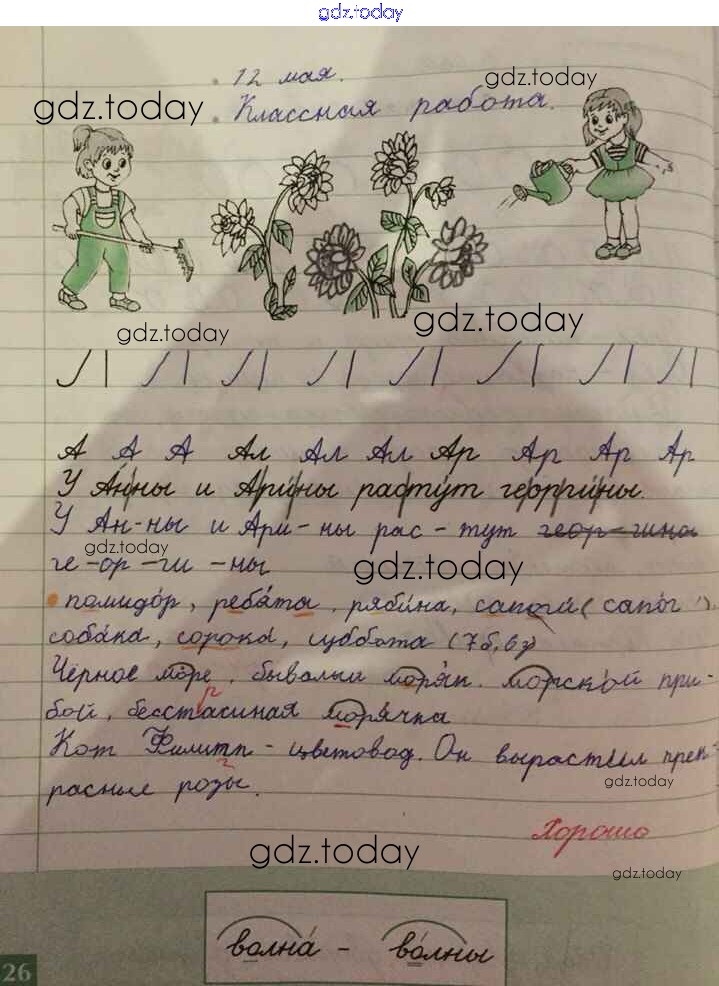 gdz.today
12 мая.
gdz.today
gdz.today
Классная работа.
gdz.today
gdz.today
А А А Ал Ал Ал Ар Ар Ар Ар
У Анны и Арины растут георгины.
У Ан-ны и Ари-ны рас-тут геор-гины
gdz.today
ге-ор-ги-ны
gdz.today
помидо́р, ребя́та, ряби́на, сапоги́ (сапо́г
соба́ка, соро́ка, суббота (7б, 6з)
Чёрное море, бывалый моря́к, морско́й при-
бой, бесст моря́чка
Кот Филипп - цветовод. Он вырастил прек-
gdz.today
расные розы.
Хорошо
gdz.today
gdz.today
волна́ - во́лны
26